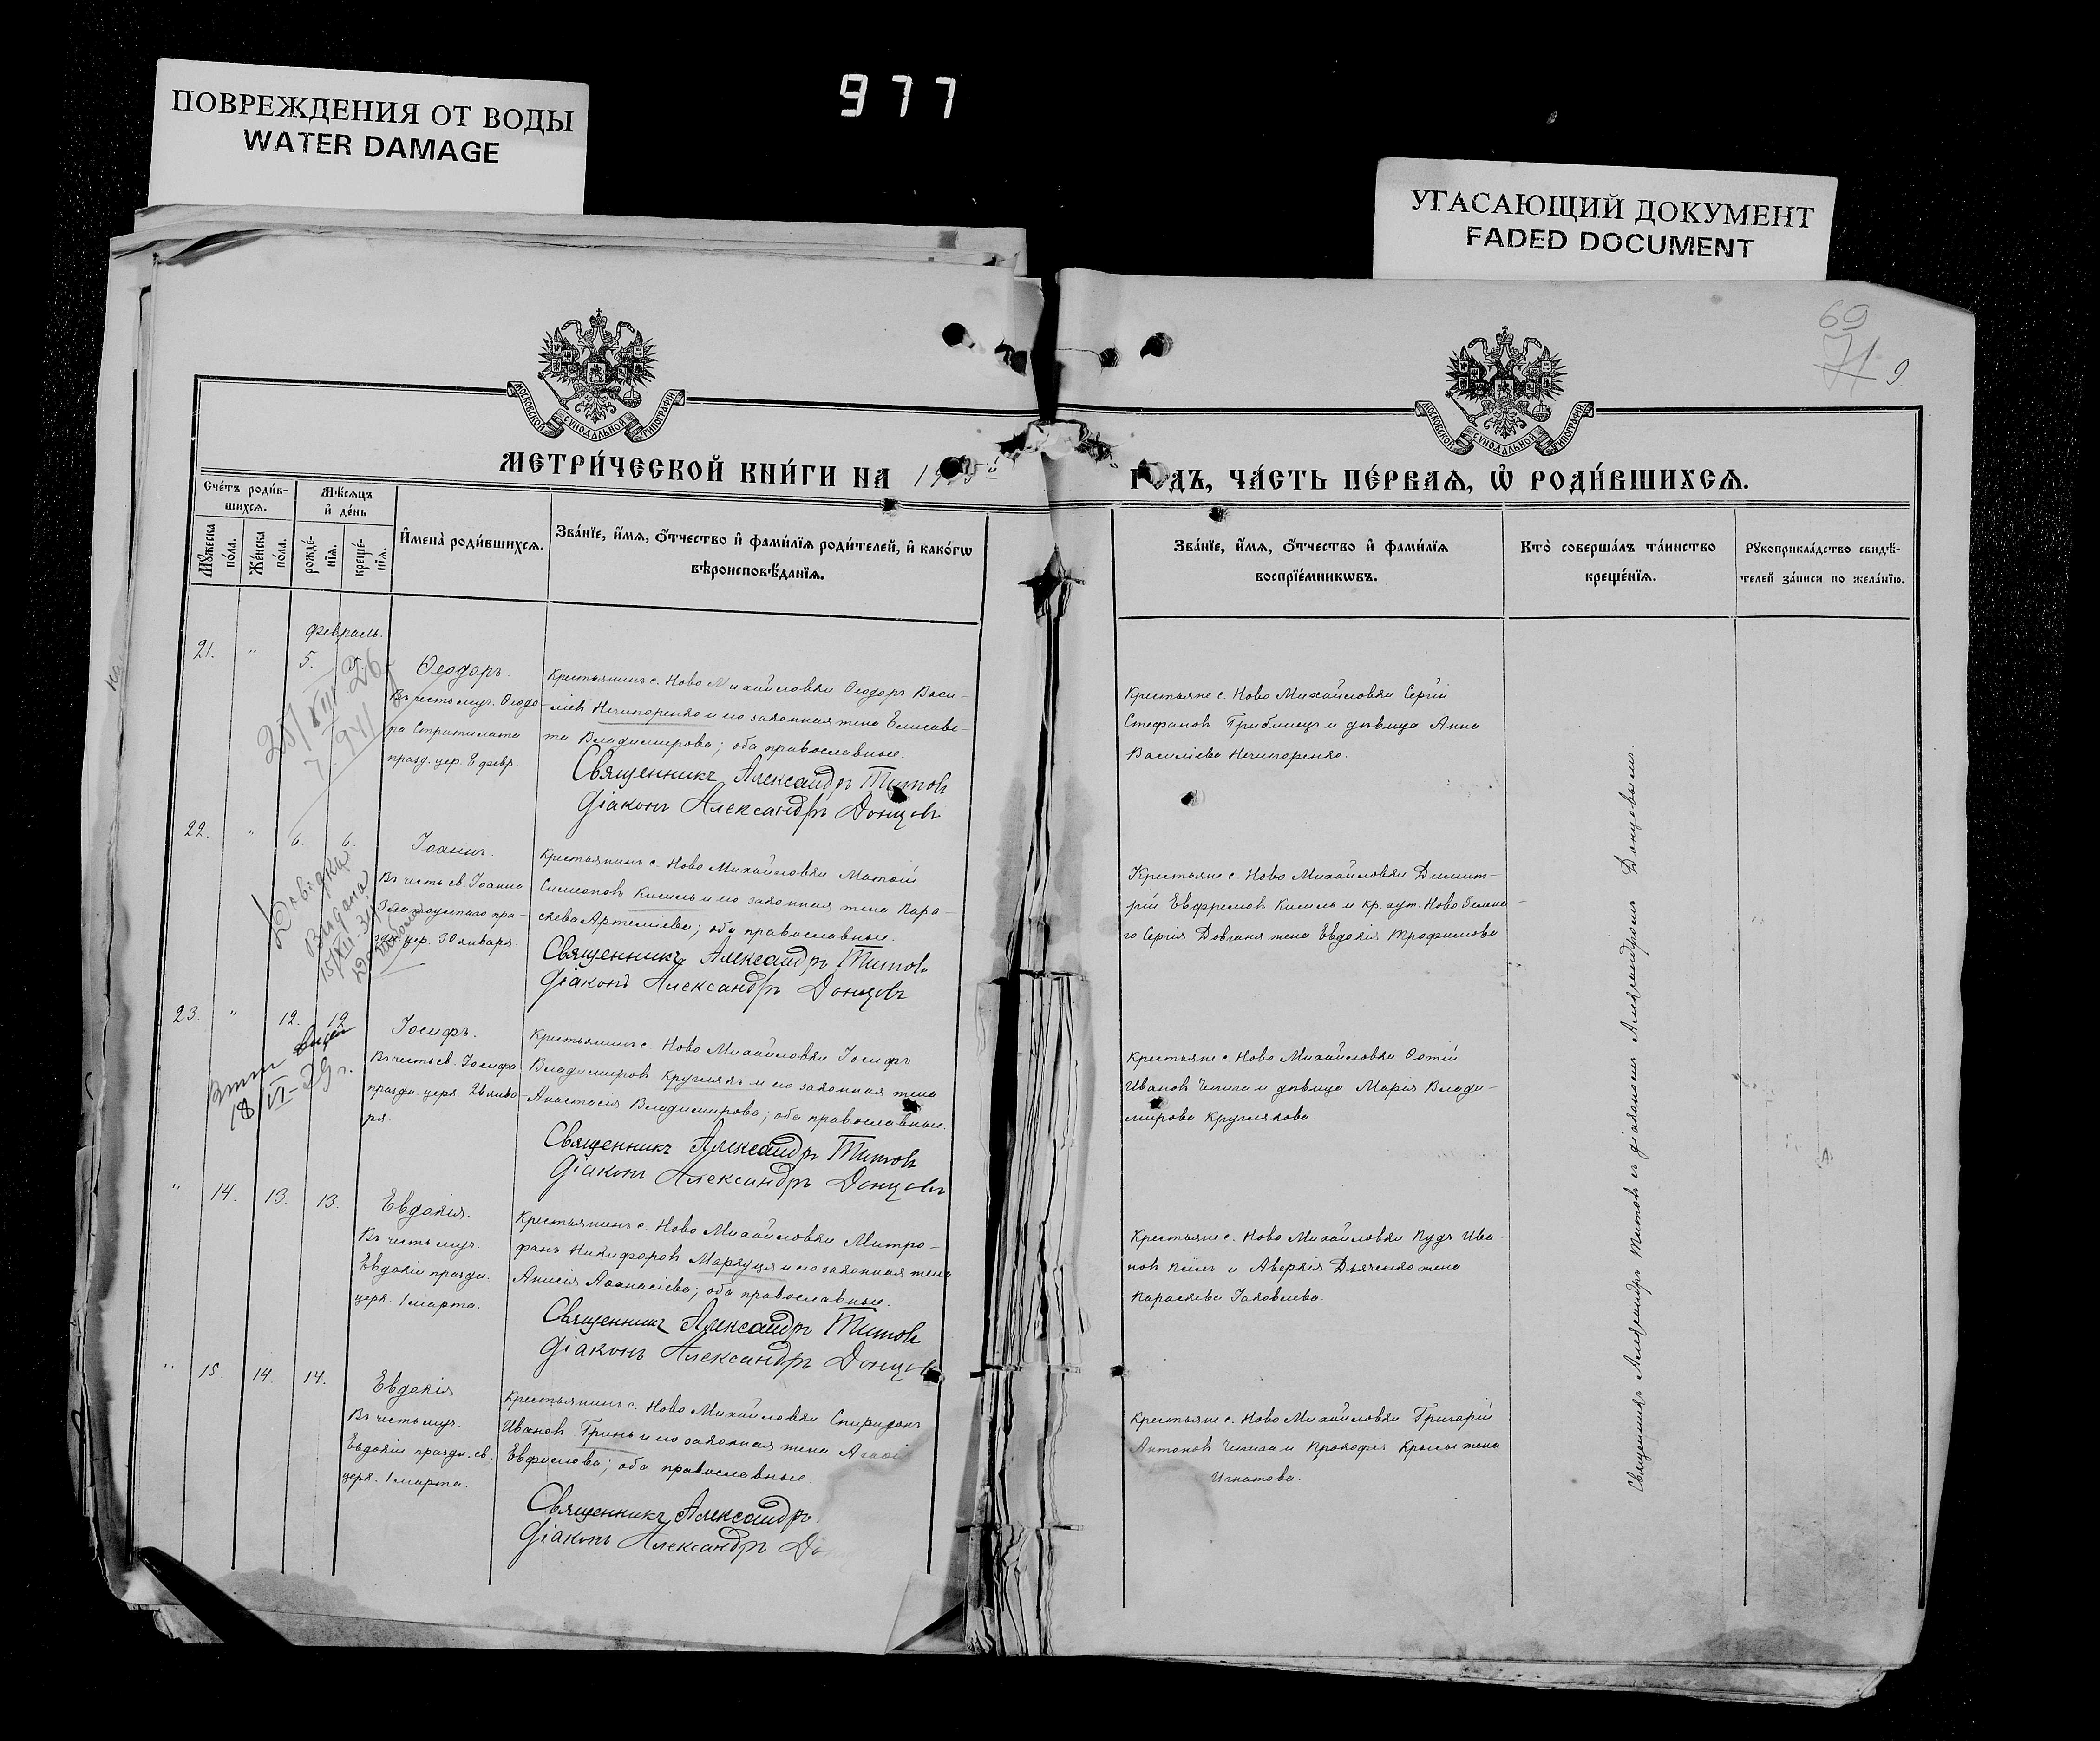 ПОВРЕЖДЕНИЯ ОТ ВОДЫ
WATER DAMAGE
977
УГАСАЮЩИЙ ДОКУМЕНТ
FADED DOCUMENT
69
71
9
МОСКОВСКОЙ СѴНОДАЛЬНОЙ ТИПОГРАФІИ
МОСКОВСКОЙ СѴНОДАЛЬНОЙ ТИПОГРАФІИ
МЕТРИ́ЧЕСКОЙ КНИ́ГИ НА
ГОДЪ, ЧА́СТЬ ПЕ́РВАѦ, Ѡ҆ РОДИ́ВШИХСѦ.
Сче́тъ роди́в-
шихсѧ.
Мѣ́сѧцъ
и҆ де́нь
Мꙋ́жеска
по́ла.
Же́нска
по́ла.
рожде́-
нїѧ.
креще́-
нїѧ.
И҆мена̀ роди́вшихсѧ.
Зва́нїе, и҆́мѧ, ѻ҆́тчество и҆ фами́лїѧ роди́телей, и҆ како́гѡ
вѣроисповѣ́данїѧ.
Зва́нїе, и҆́мѧ, ѻ҆́тчество и҆ фами́лїѧ
воспрїе́мникѡвъ.
Кто̀ соверша́лъ та́инство
креще́нїѧ.
Рꙋкоприкла́дство свидѣ́-
телей за́писи по жела́нїю.
Февраль.
21. " 5.
Ѳеодоръ.
Въ честь муч. Ѳеодо-
ра Стратилата
празд. цер. 8 февр.
Крестьянинъ с. Ново Михайловки Ѳеодоръ Васи-
ліевъ Нечипоренко и его законная жена Елисаве-
та Владимирова; оба православные.
Священникъ Александръ Титовъ
Діаконъ Александръ Донцовъ
Крестьяне с. Ново Михайловки Сергій
Стефановъ Грибинецъ и дѣвица Анна
Василіева Нечипоренко.
22. " 6. 6.
Іоаннъ.
Въ честь св. Іоанна
Златоустаго пра-
здн. цер. 30 января.
Крестьянинъ с. Ново Михайловки Матѳій
Симеоновъ Кисиль и его законная жена Пара-
скева Артеміева; оба православные.
Священникъ Александръ Титовъ
Діаконъ Александръ Донцовъ
Крестьяне с. Ново Михайловки Димит-
рій Евфремовъ Кисиль и кр. хут. Ново
го Сергія Довганя жена Евдокія Трофимова
Довідка
Видана
23. " 12. 12
Іосифъ.
Въ честь св. Іосифа
праздн. церк. 26 янва
ря.
Крестьянинъ с. Ново Михайловки Іосифъ
Владимировъ Круглякъ и его законная жена
Анастасія Владимирова; оба православные.
Священникъ Александръ Титовъ
Діаконъ Александръ Донцовъ
Крестьяне с. Ново Михайловки Ѳотій
Ивановъ Чепига и дѣвица Марія Влади-
мирова Круглякова.
18 VI-29 г.
" 14. 13. 13.
Евдокія.
Въ честь муч.
Евдокіи праздн.
церк. 1 марта.
Крестьянинъ с. Ново Михайловки Митро-
фанъ Никифоровъ Маркуця и его законная жена
Анисія Аѳанасіева; оба православные.
Священникъ Александръ Титовъ
Діаконъ Александръ Донцовъ
Крестьяне с. Ново Михайловки Кудъ Ива-
новъ и Аверкія Дьяченко жена
Параскева Іаковлева.
" 15. 14. 14.
Евдокія
Въ честь муч.
Евдокіи праздн. св.
церк. 1 марта.
Крестьянинъ с. Ново Михайловки Спиридонъ
Ивановъ Гринь и его законная жена
Евфимова; оба православные.
Священникъ Александръ
Діаконъ Александръ До
Крестьяне с. Ново Михайловки Григорій
Антоновъ Чепига и Прокофія жена
Игнатова.
Священникъ Александръ Титовъ съ діакономъ Александромъ Донцовымъ.